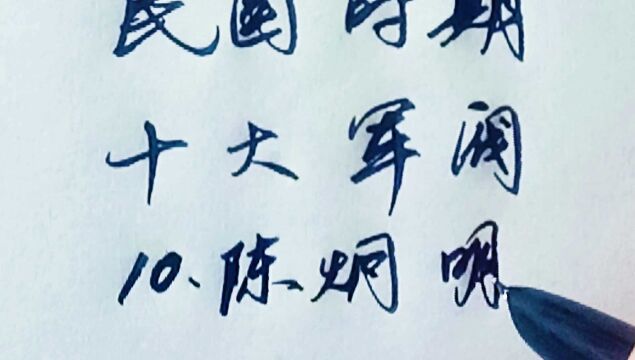 民国时期
十大军阀
10.陈炯明